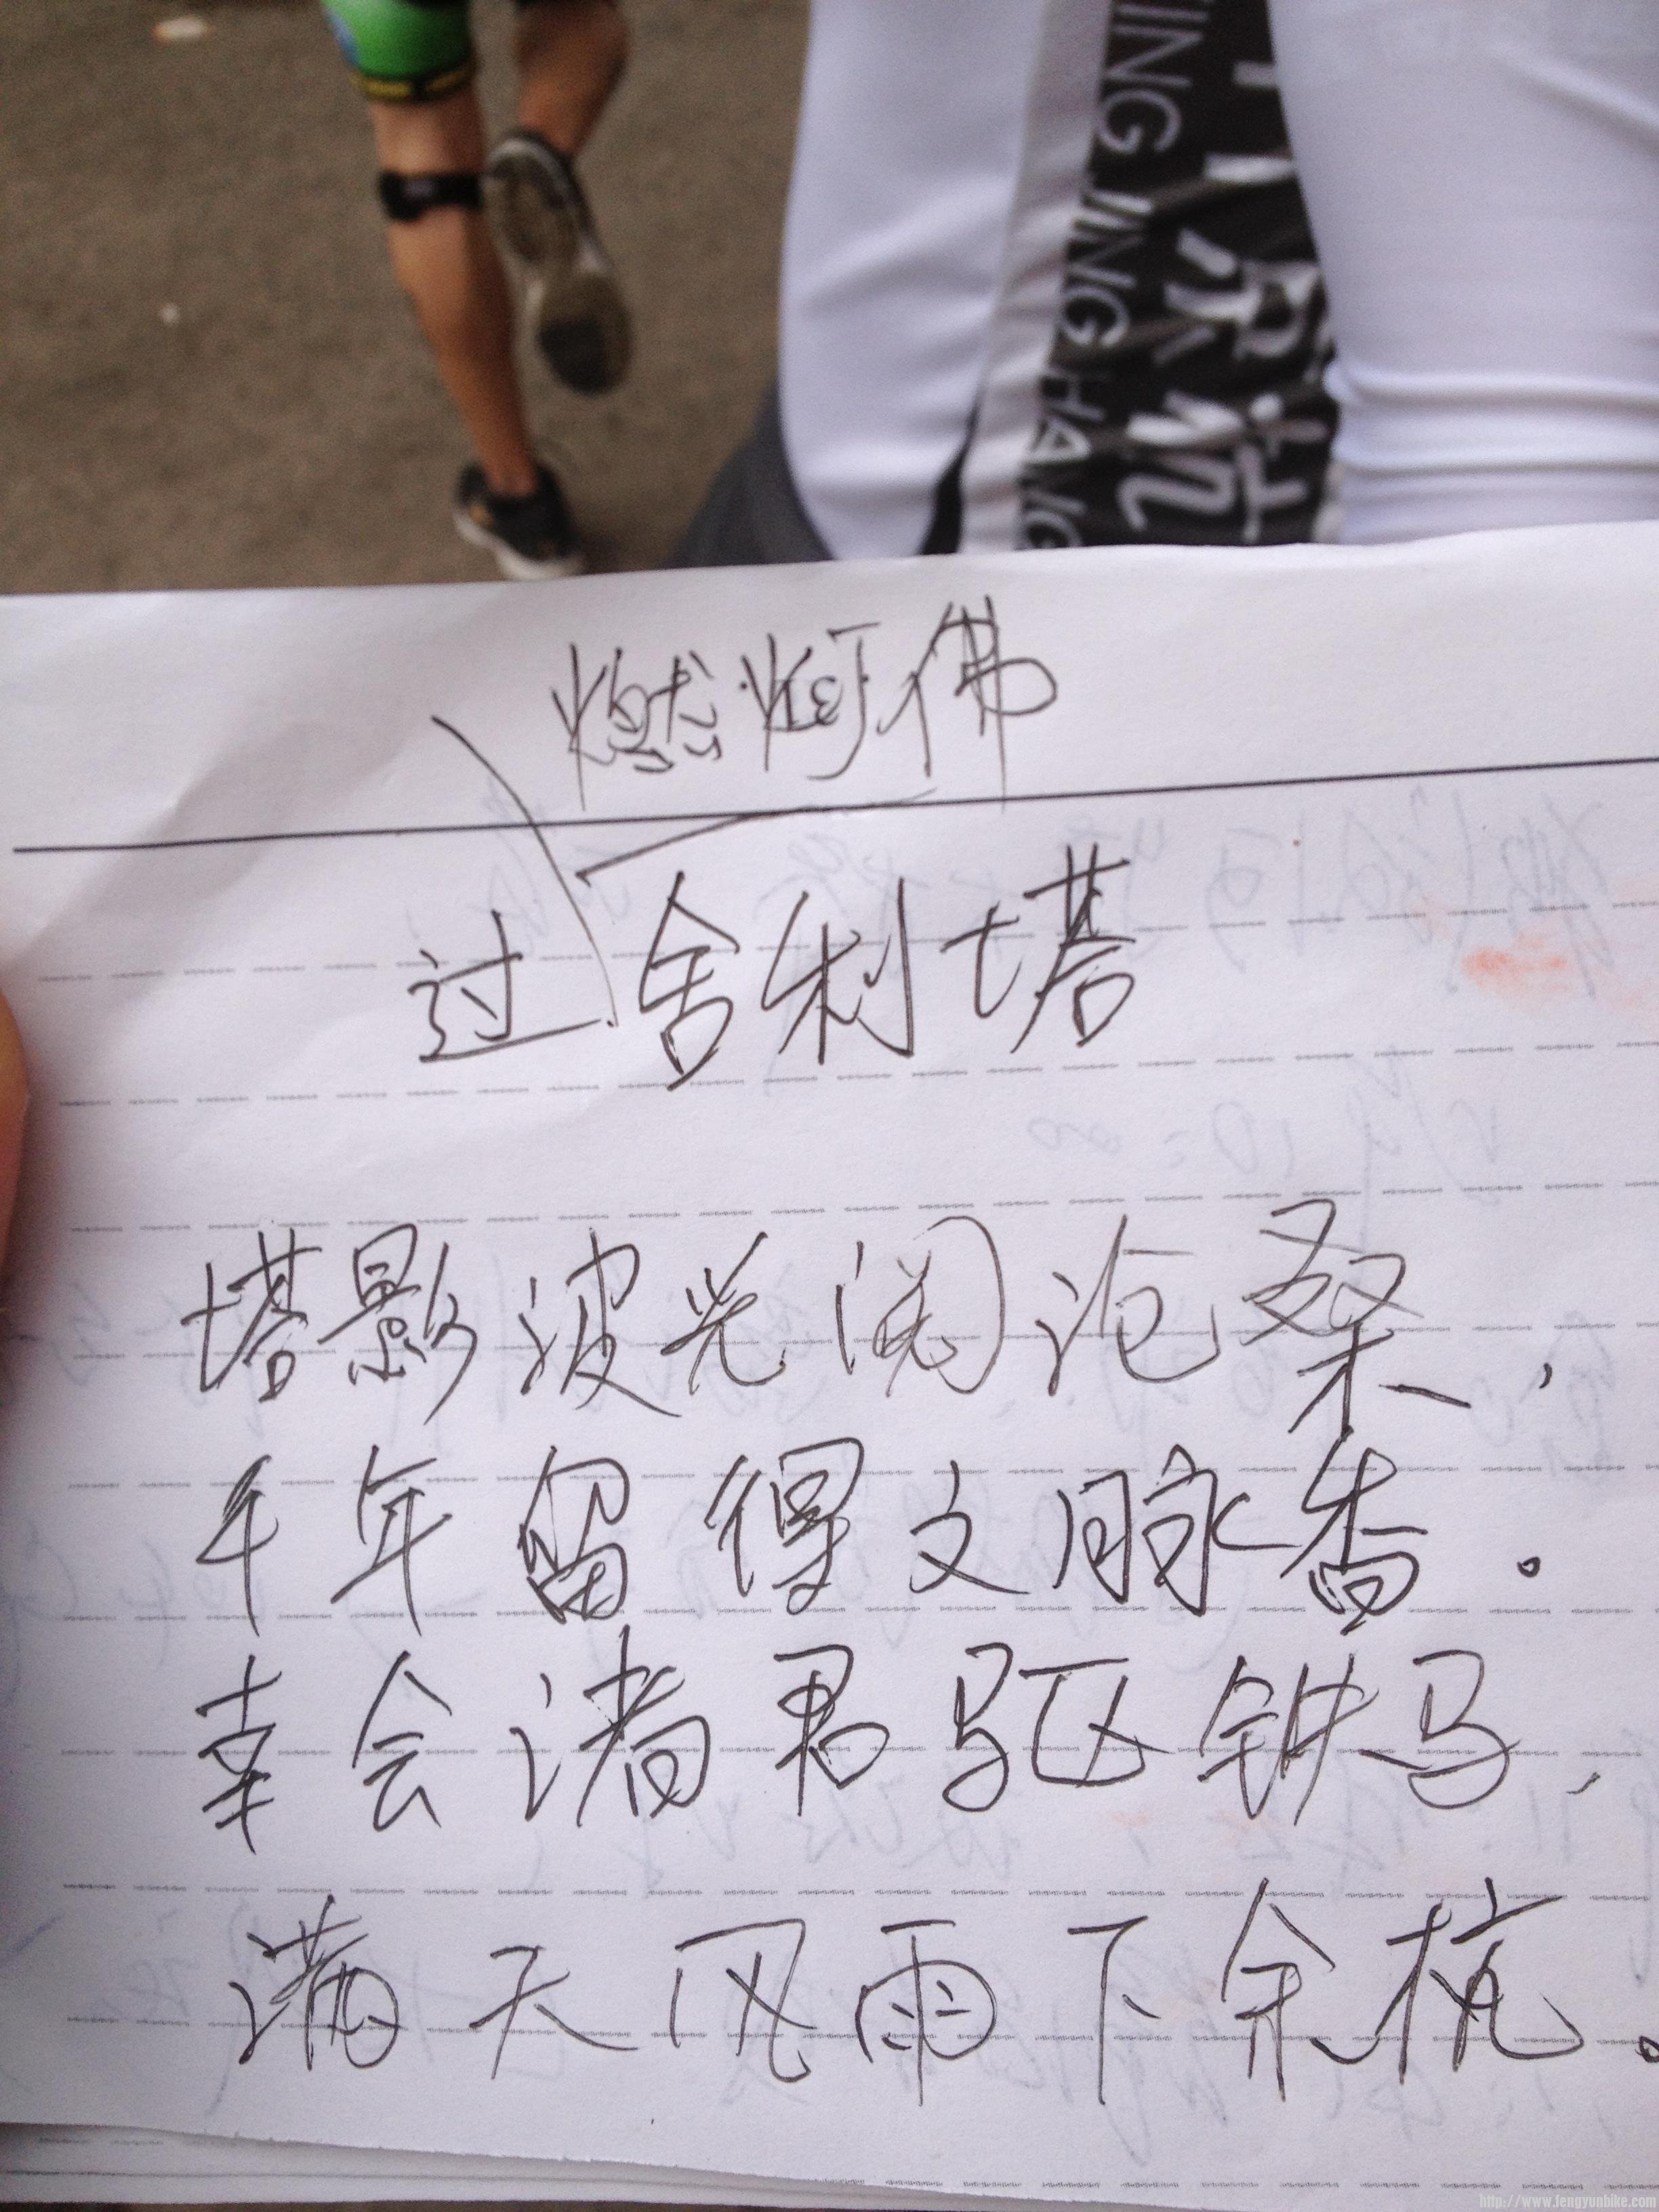 JING JING HANG
京杭
燃灯佛
过舍利塔
塔影波光阅沧桑，
千年留得文脉香。
幸会诸君驱铁马，
满天风雨下余杭。
http://www.fengyunbike.com